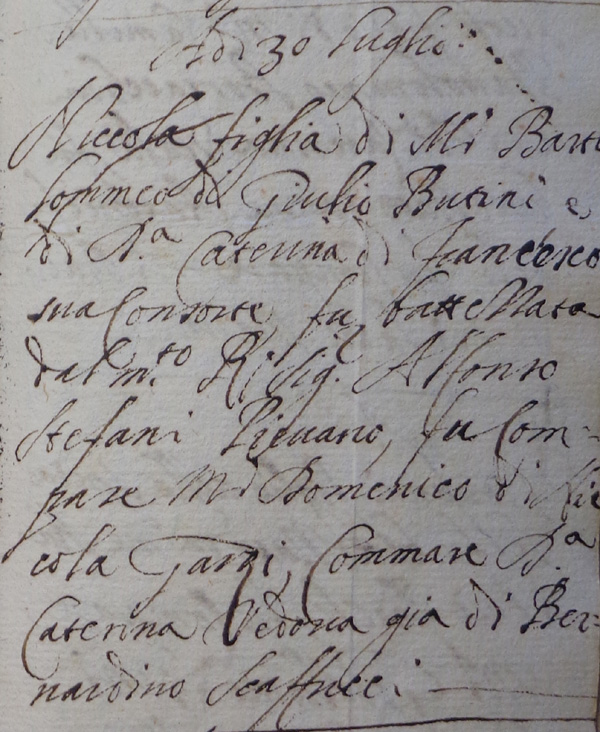 Adi 30 Luglio
Niccola figlia di Mr Barto
lommeo di Giulio Butini e
di D.a Caterina di Francesco
sua Consorte, fu battezzata
dal m.to R. Sig. Alfonso
Stefani Pievano, fu Com-
pare Mr Domenico di Nic
cola Garzi, Commare D.a
Caterina Vedova gia di Ber-
nardino Scaffucci